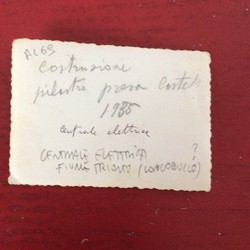 AL69
Costruzione
pilastro presa Castel
1935
Centrale elettrica
?
CENTRALE ELETTRICA
FIUME TRIONTO (LONGOBUCCO)